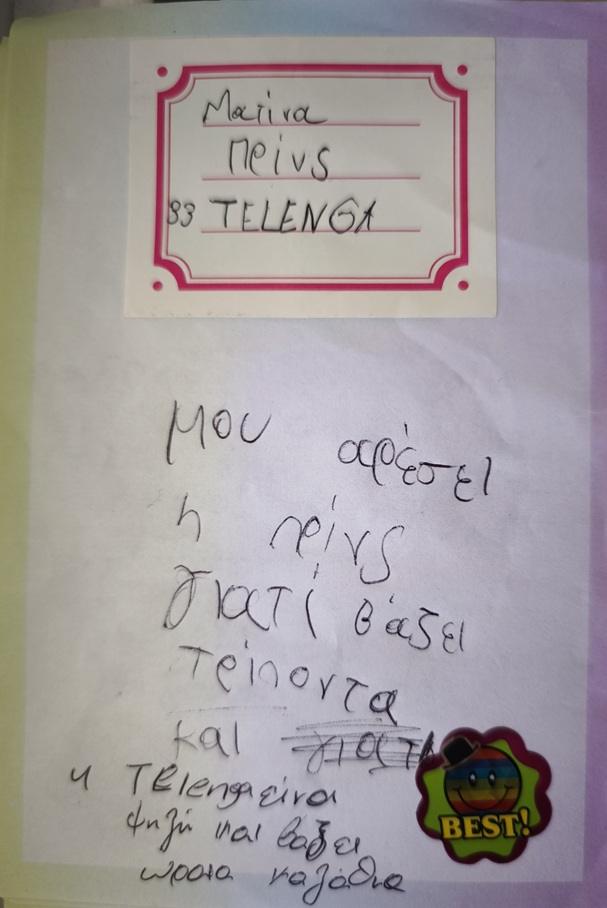 Ματίνα
Πρίνς
33 TELENGA
Μου αρέσει
η πρίνς
γιατί βάζει
τρίποντα
και γιατί
η Telenga είναι
ψηλή και βάζει
ωραια καλάθια
BEST!